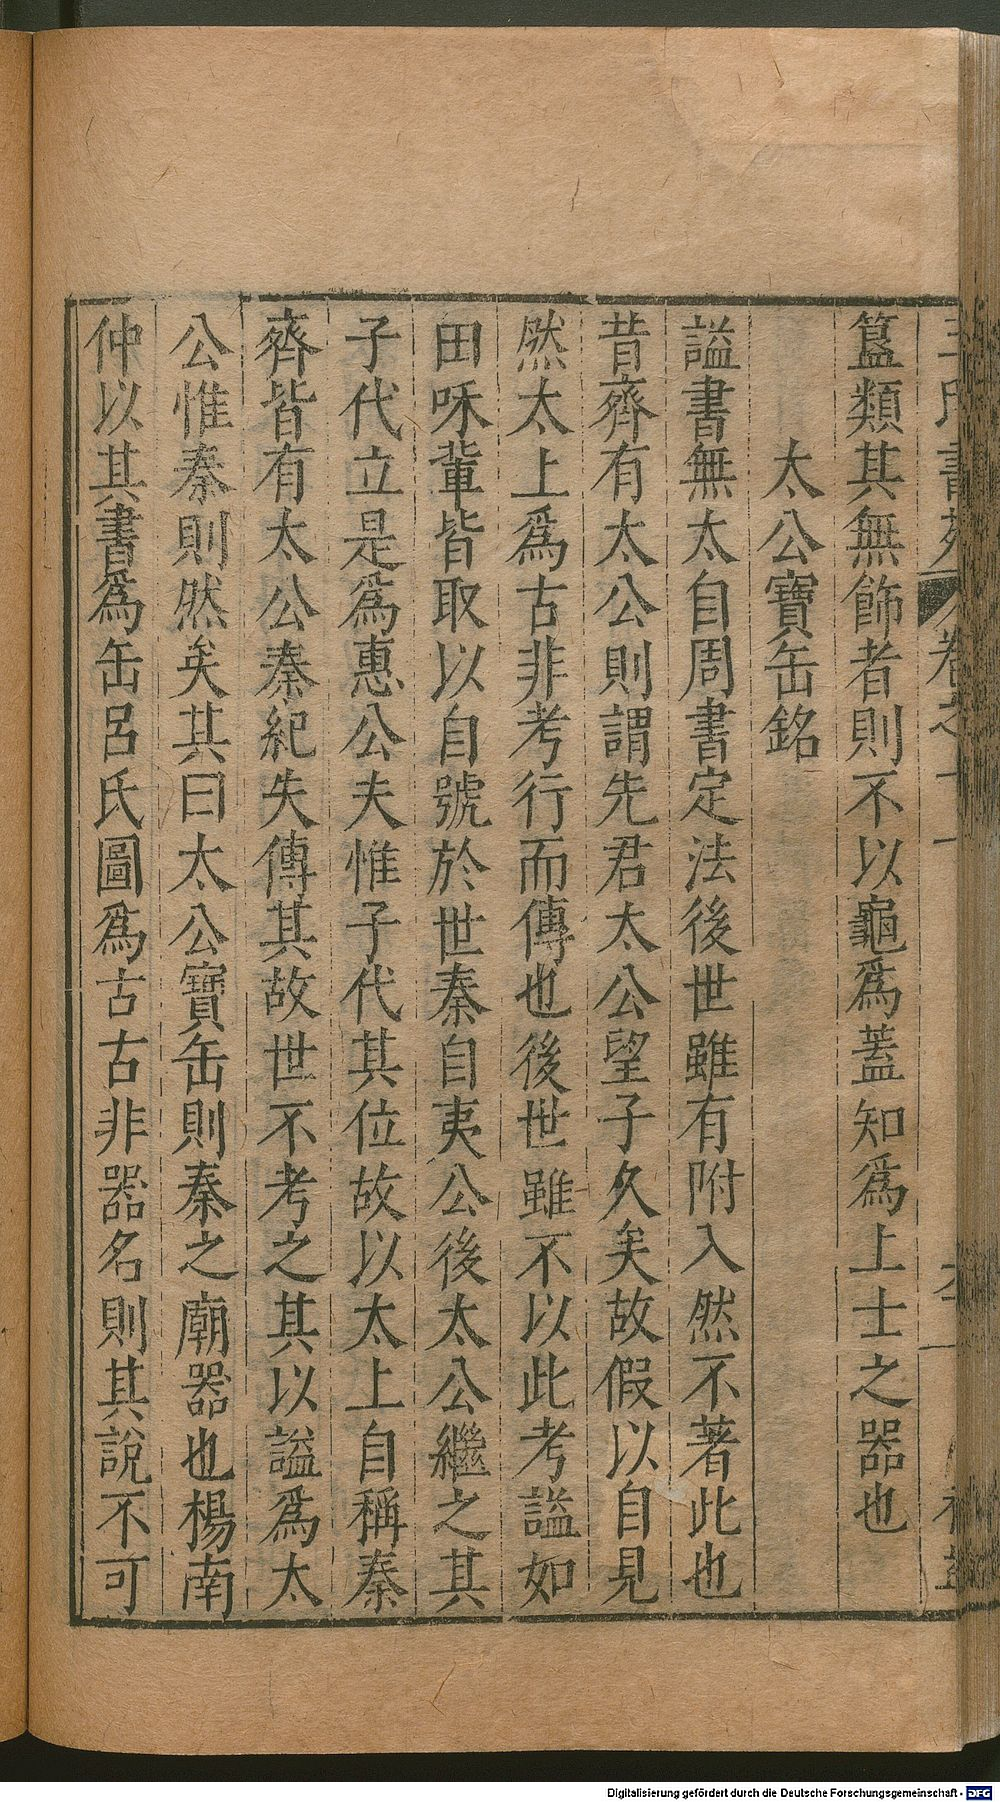 王氏書苑 卷之十
簋類其無飾者則不以龜爲蓋知爲上士之器也
太公寶缶銘
謚書無太自周書定法後世雖有附入然不著此也
昔齊有太公則謂先君太公望子久矣故假以自見
然太上爲古非考行而傳也後世雖不以此考謚如
田和輩皆取以自號於世秦自夷公後太公繼之其
子代立是爲惠公夫惟子代其位故以太上自稱秦
齊皆有太公秦紀失傳其故世不考之其以謚爲太
公惟秦則然矣其曰太公寶缶則秦之廟器也楊南
仲以其書爲缶呂氏圖爲古古非器名則其說不可
Digitalisierung gefördert durch die Deutsche Forschungsgemeinschaft - DFG